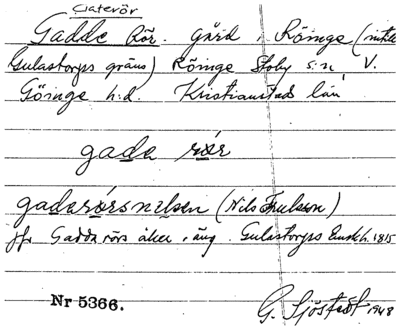 Gaterör
Gadde Rör. gård i Röinge (intill
Gulastorps gräns) Röinge Stoby s:n, V.
Göinge h.d. Kristianstads län
gada rör
gadarörsnilsen (Nils Trulsson)
jfr Gadda rörs åker, äng. Gulastorps Enskh. 1815
Nr 5366.
G. Sjöstedt 1948